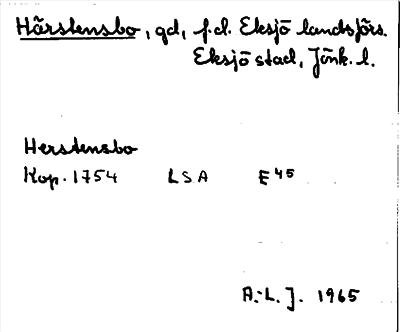 Hårstensbo, gd, f.d. Eksjö landsförs.
Eksjö stad, Jönk. l.
Herstensbo
Kop. 1754 LSA E45
A.-L. J. 1965